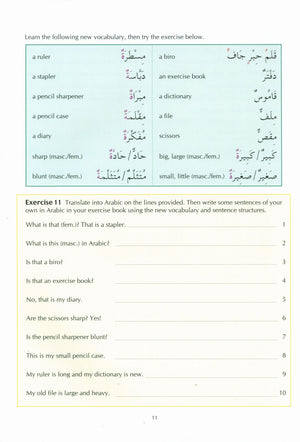 Learn the following new vocabulary, then try the exercise below.
a ruler مِسْطَرَةٌ a biro قَلَمُ حِبْرٍ جَافٍّ
a stapler دَبَّاسَةٌ an exercise book دَفْتَرٌ
a pencil sharpener مِبْرَاةٌ a dictionary قَامُوسٌ
a pencil case مِقْلَمَةٌ a file مِلَفٌّ
a diary مُفَكِّرَةٌ scissors مِقَصٌّ
sharp (masc./fem.) حَادٌّ/ حَادَّةٌ big, large (masc./fem.) كَبِيرٌ/ كَبِيرَةٌ
blunt (masc./fem.) مُتَثَلِّمٌ/ مُتَثَلِّمَةٌ small, little (masc./fem.) صَغِيرٌ/ صَغِيرَةٌ
Exercise 11 Translate into Arabic on the lines provided. Then write some sentences of your
own in Arabic in your exercise book using the new vocabulary and sentence structures.
What is that (fem.)? That is a stapler. 1
What is this (masc.) in Arabic? 2
Is that a biro? 3
Is that an exercise book? 4
No, that is my diary. 5
Are the scissors sharp? Yes! 6
Is the pencil sharpener blunt? 7
This is my small pencil case. 8
My ruler is long and my dictionary is new. 9
My old file is large and heavy. 10
11